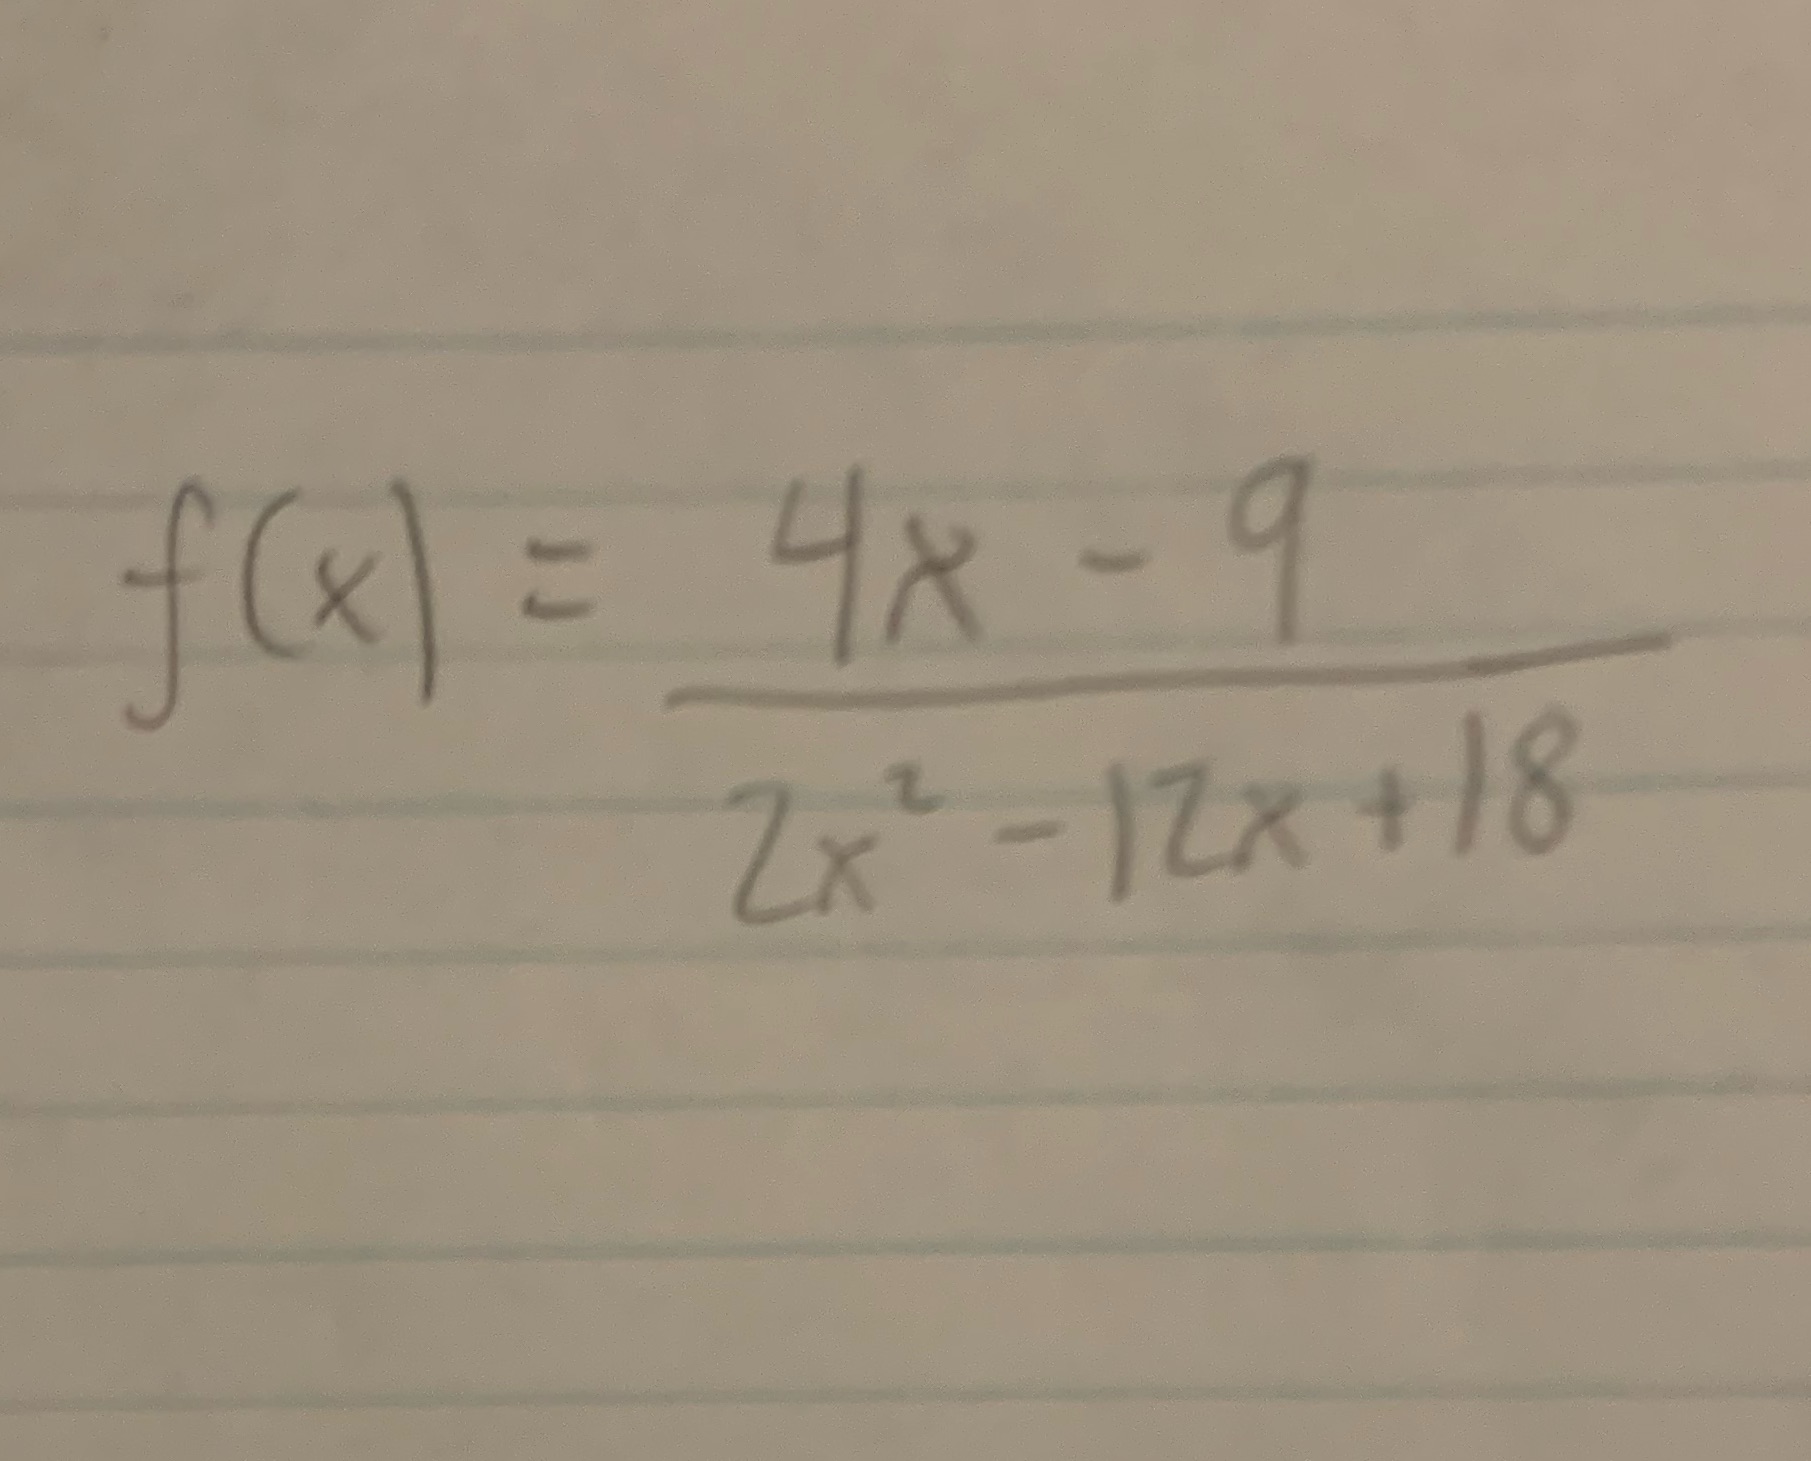 f(x) = 4x - 9
2x² - 12x + 18